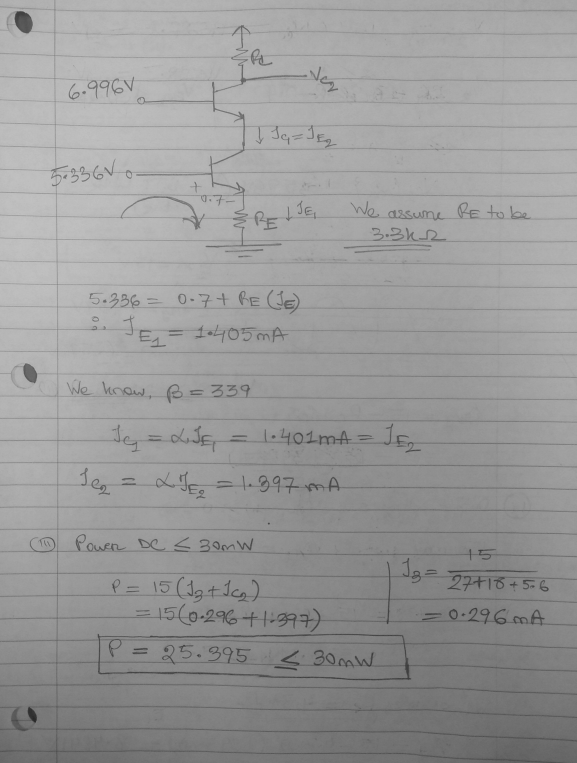 R_C
V_C2
6.996V
↓ I_C1 = I_E2
5.336V
+
0.7 −
R_E ↓ I_E1
We assume R_E to be
3.3kΩ
5.336 = 0.7 + R_E (I_E)
∴ I_E1 = 1.405mA
We know, β = 339
I_C1 = αI_E1 = 1.401mA = I_E2
I_C2 = αI_E2 = 1.397mA
(iii) Power DC ≤ 30mW
P = 15(I_3 + I_C2)
= 15(0.296 + 1.397)
P = 25.395 ≤ 30mW
I_3 = 15 / (27+18+5.6)
= 0.296mA